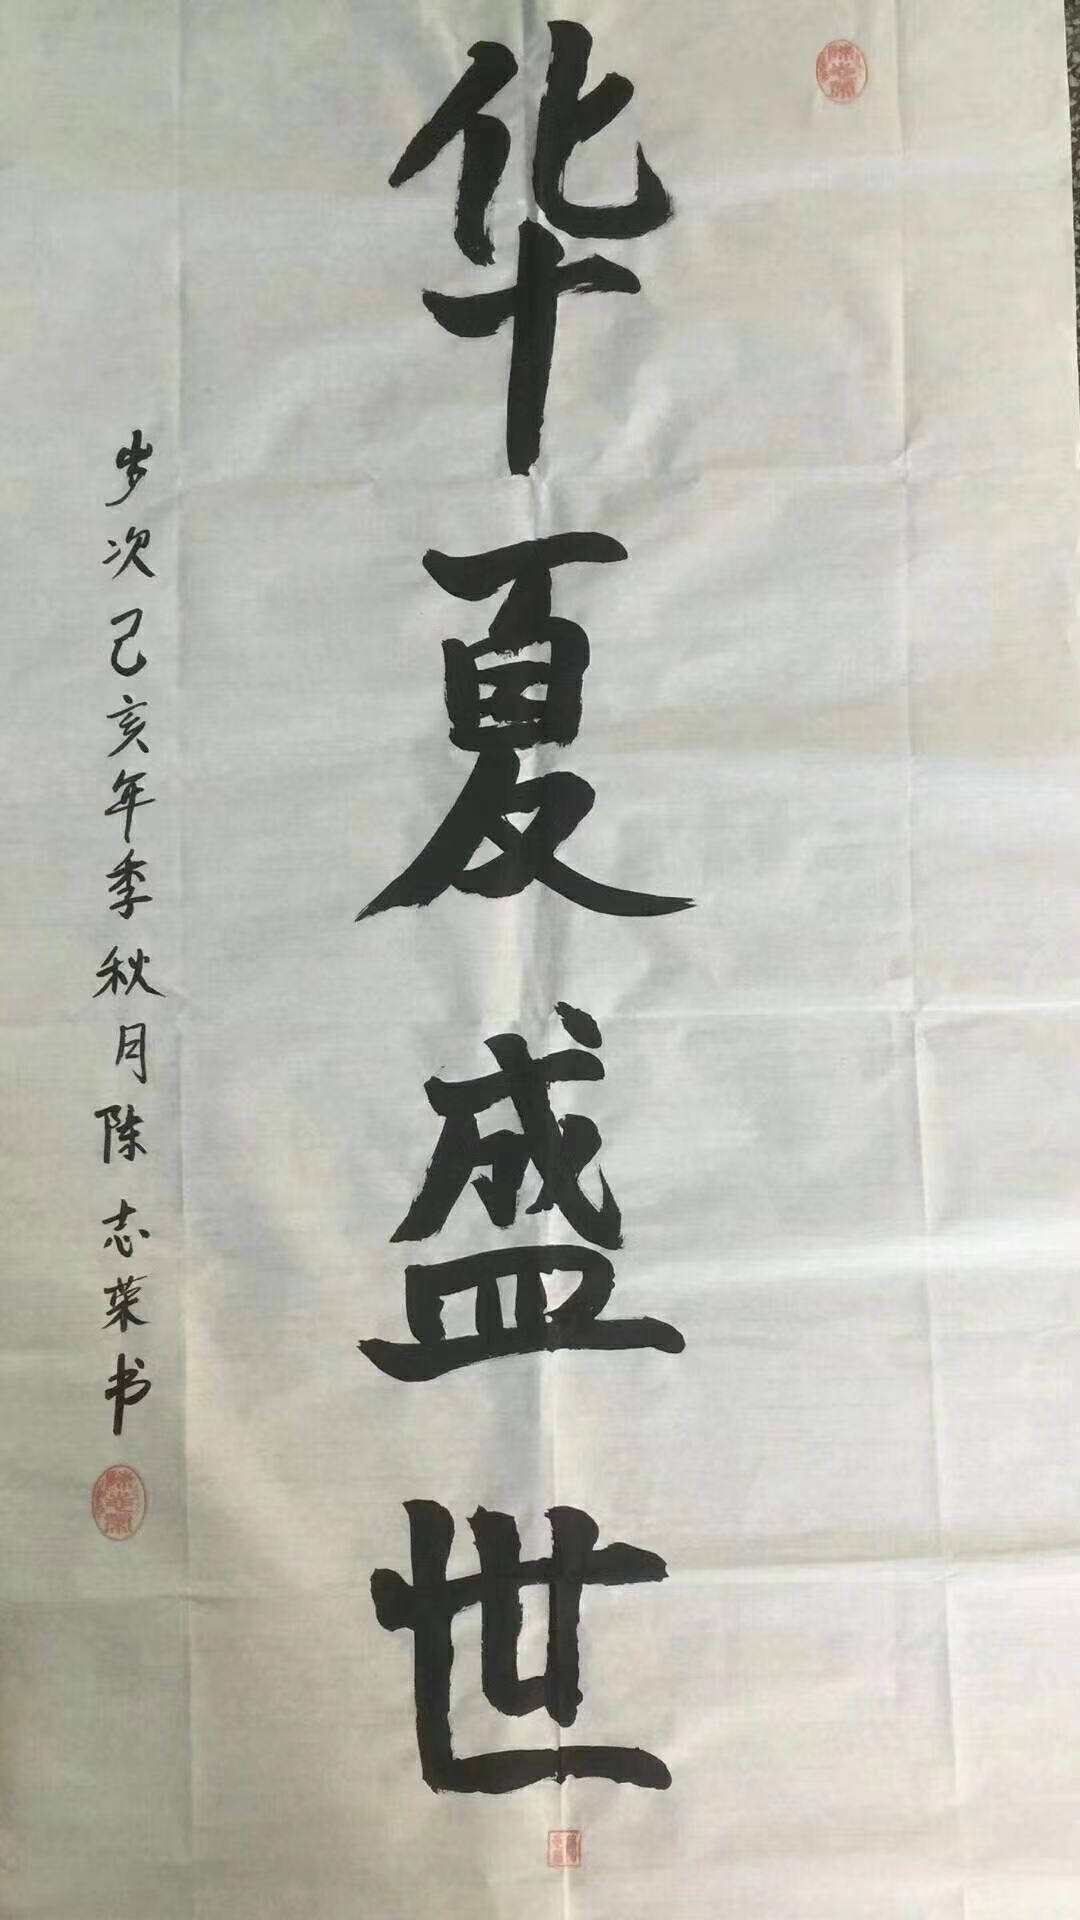 华夏盛世
岁次己亥年季秋月陈志荣书